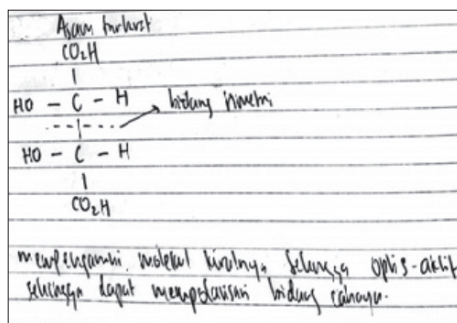 Asam tartarat
CO₂H
|
HO - C - H
bidang simetri
HO - C - H
|
CO₂H
mempengaruhi molekul kiralnya sehingga optis-aktif
sehingga dapat mempolarisasi bidang cahaya.